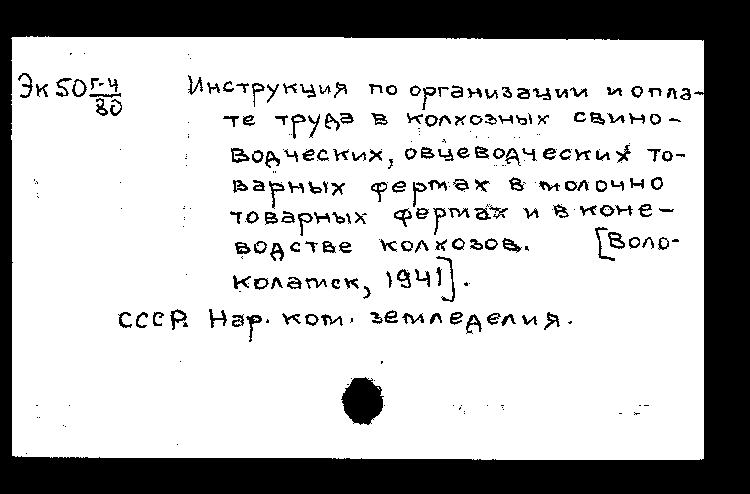 Эк 50 г-4/80 Инструкция по организации и опла-
те труда в колхозных свино-
водческих, овцеводческих то-
варных фермах в молочно
товарных фермах и в коне-
водстве колхозов. [Воло-
коламск, 1941].
СССР. Нар. ком. земледелия.